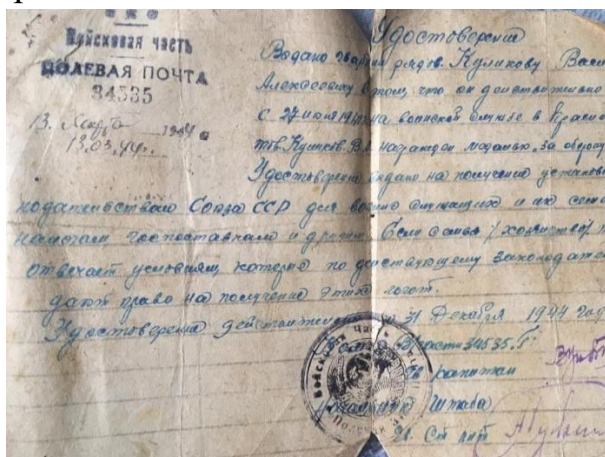 Войсковая часть
ПОЛЕВАЯ ПОЧТА
34535
13. Марта 1944 г
13.03.44г.
Удостоверение
Выдано гвардии рядов. Куликову Васи
Алексеевичу в том, что он действительно
с 27 июня 1941 на воинской службе в Красно
тов. Куликов В.А. награжден медалью "за оборону
Удостоверение выдано на получение установ
нодательством Союза ССР для военно служащих и их семе
налогам госпоставкам и другим. Если семья / хозяйство / 
отвечает условиям, которые по действующему законодател
дают право на получение этих льгот.
Удостоверение действительно по 31 Декабря 1944 год
части 34535 "Г"
капитан
Штаба
Ст лит